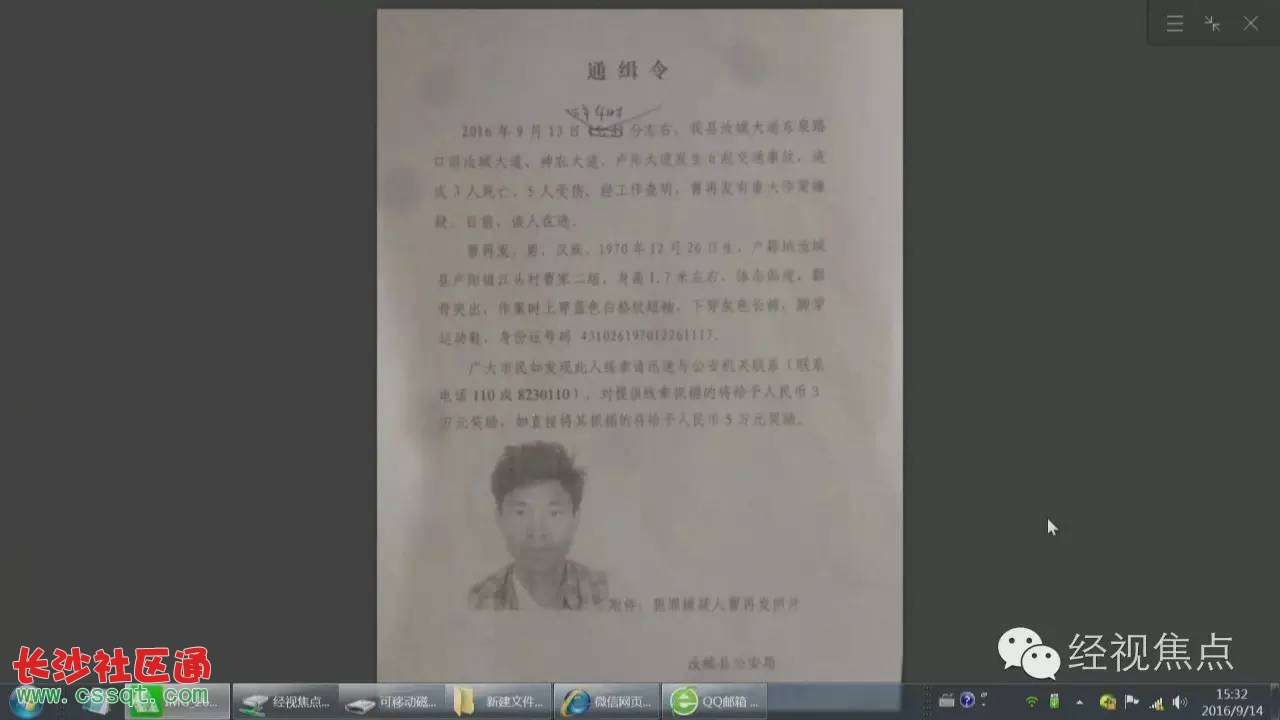 通缉令
2016年9月13日 分左右，我县汝城大道东泉路
口沿汝城大道、神农大道、卢阳大道发生6起交通事故，造
成3人死亡，5人受伤。经工作查明，曹再发有重大作案嫌
疑。目前，该人在逃。
曹再发，男，汉族，1970年12月26日生，户籍地汝城
县卢阳镇江头村曹家二组，身高1.7米左右，体态偏瘦，颧
骨突出，作案时上穿蓝色白格纹短袖，下穿灰色长裤，脚穿
运动鞋，身份证号码 431026197012261117。
广大市民如发现此人线索请迅速与公安机关联系（联系
电话110或8230110），对提供线索抓捕的将给予人民币3
万元奖励，如直接将其抓捕的将给予人民币5万元奖励。
附件：犯罪嫌疑人曹再发照片
汝城县公安局
经视焦点
长沙社区通
www.cssqt.com
经视焦点...
可移动磁...
新建文件...
微信网页...
QQ邮箱 ...
15:32
2016/9/14